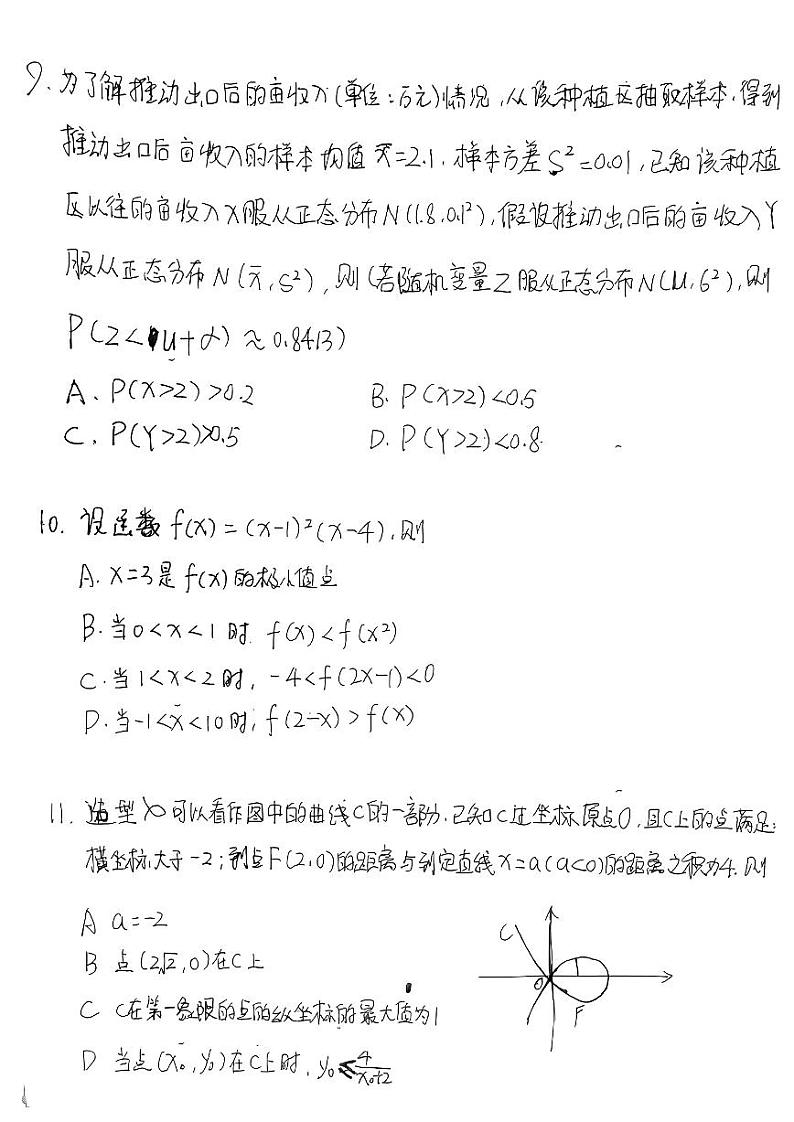 9.为了解推动出口后的亩收入(单位:万元)情况,从该种植区抽取样本,得到
推动出口后亩收入的样本均值x̄=2.1,样本方差S²=0.01,已知该种植
区以往的亩收入X服从正态分布N(1.8,0.1²),假设推动出口后的亩收入Y
服从正态分布N(x̄,S²),则(若随机变量Z服从正态分布N(u,6²),则
P(Z<u+α)≈0.8413)
A. P(X>2)>0.2 B. P(X>2)<0.5
C. P(Y>2)>0.5 D. P(Y>2)<0.8
10. 设函数f(x)=(x-1)²(x-4),则
A. x=3是f(x)的极小值点
B.当0<x<1时 f(x)<f(x²)
C.当1<x<2时,-4<f(2x-1)<0
D.当-1<x<10时,f(2-x)>f(x)
11. 造型∝可以看作图中的曲线C的一部分,已知C过坐标原点O,且C上的点满足:
横坐标大于-2;到点F(2,0)的距离与到定直线x=a(a<0)的距离之积为4.则
A a=-2
B 点(2√2,0)在C上
C C在第一象限的点的纵坐标的最大值为1
D 当点(x₀,y₀)在C上时,y₀≤4/(x₀+2)
C
O
F